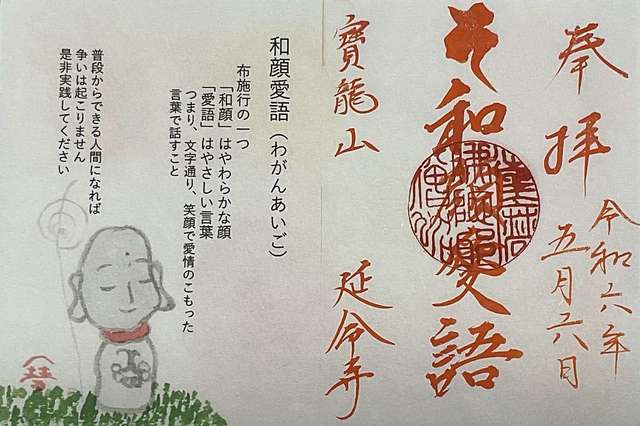 奉拝
令和六年
五月六日
和顔愛語
寳龍山
延命寺
和顔愛語（わがんあいご）
布施行の一つ
「和顔」はやわらかな顔
「愛語」はやさしい言葉
つまり、文字通り、笑顔で愛情のこもった
言葉で話すこと
普段からできる人間になれば
争いは起こりません
是非実践してください